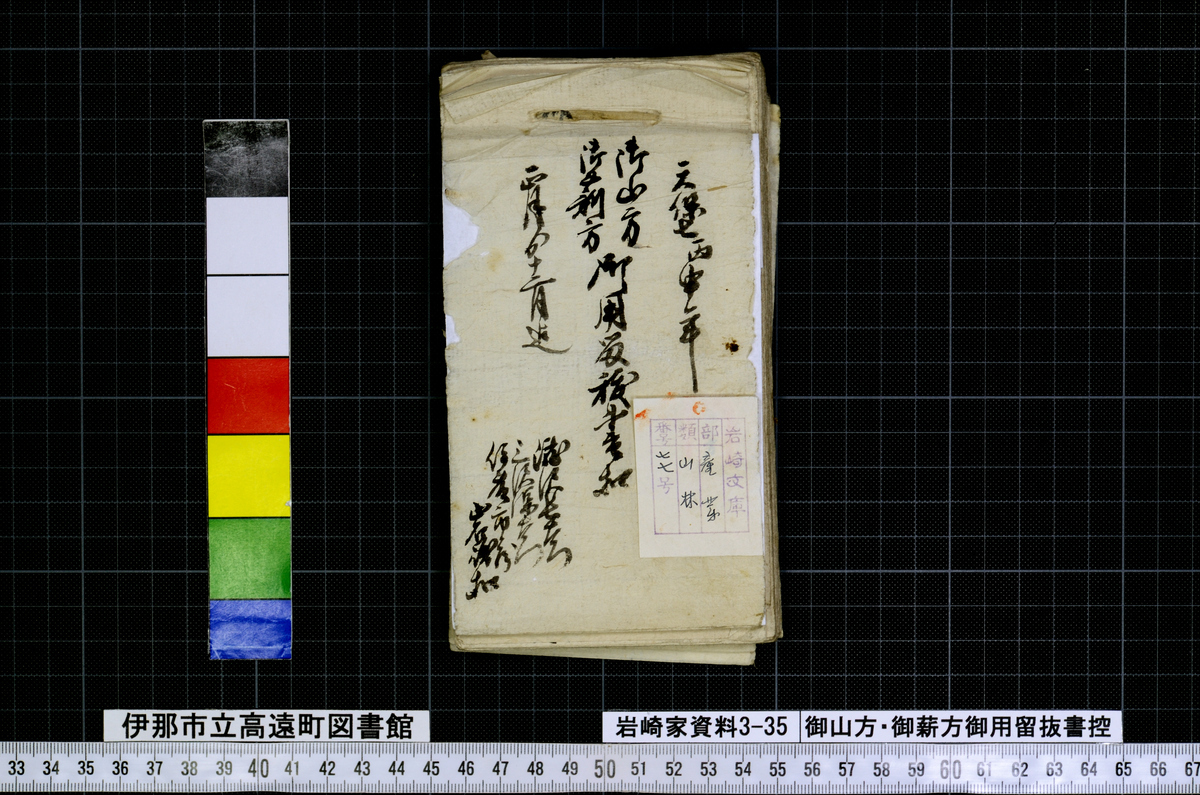 天保七丙申年
御山方
御薪方
御用留抜書扣
正月ゟ十二月迄
岩崎文庫
部 産業
類 山林
番号 七七号
伊那市立高遠町図書館
岩崎家資料3-35
御山方・御薪方御用留抜書控
33 34 35 36 37 38 39 40 41 42 43 44 45 46 47 48 49 50 51 52 53 54 55 56 57 58 59 60 61 62 63 64 65 66 67